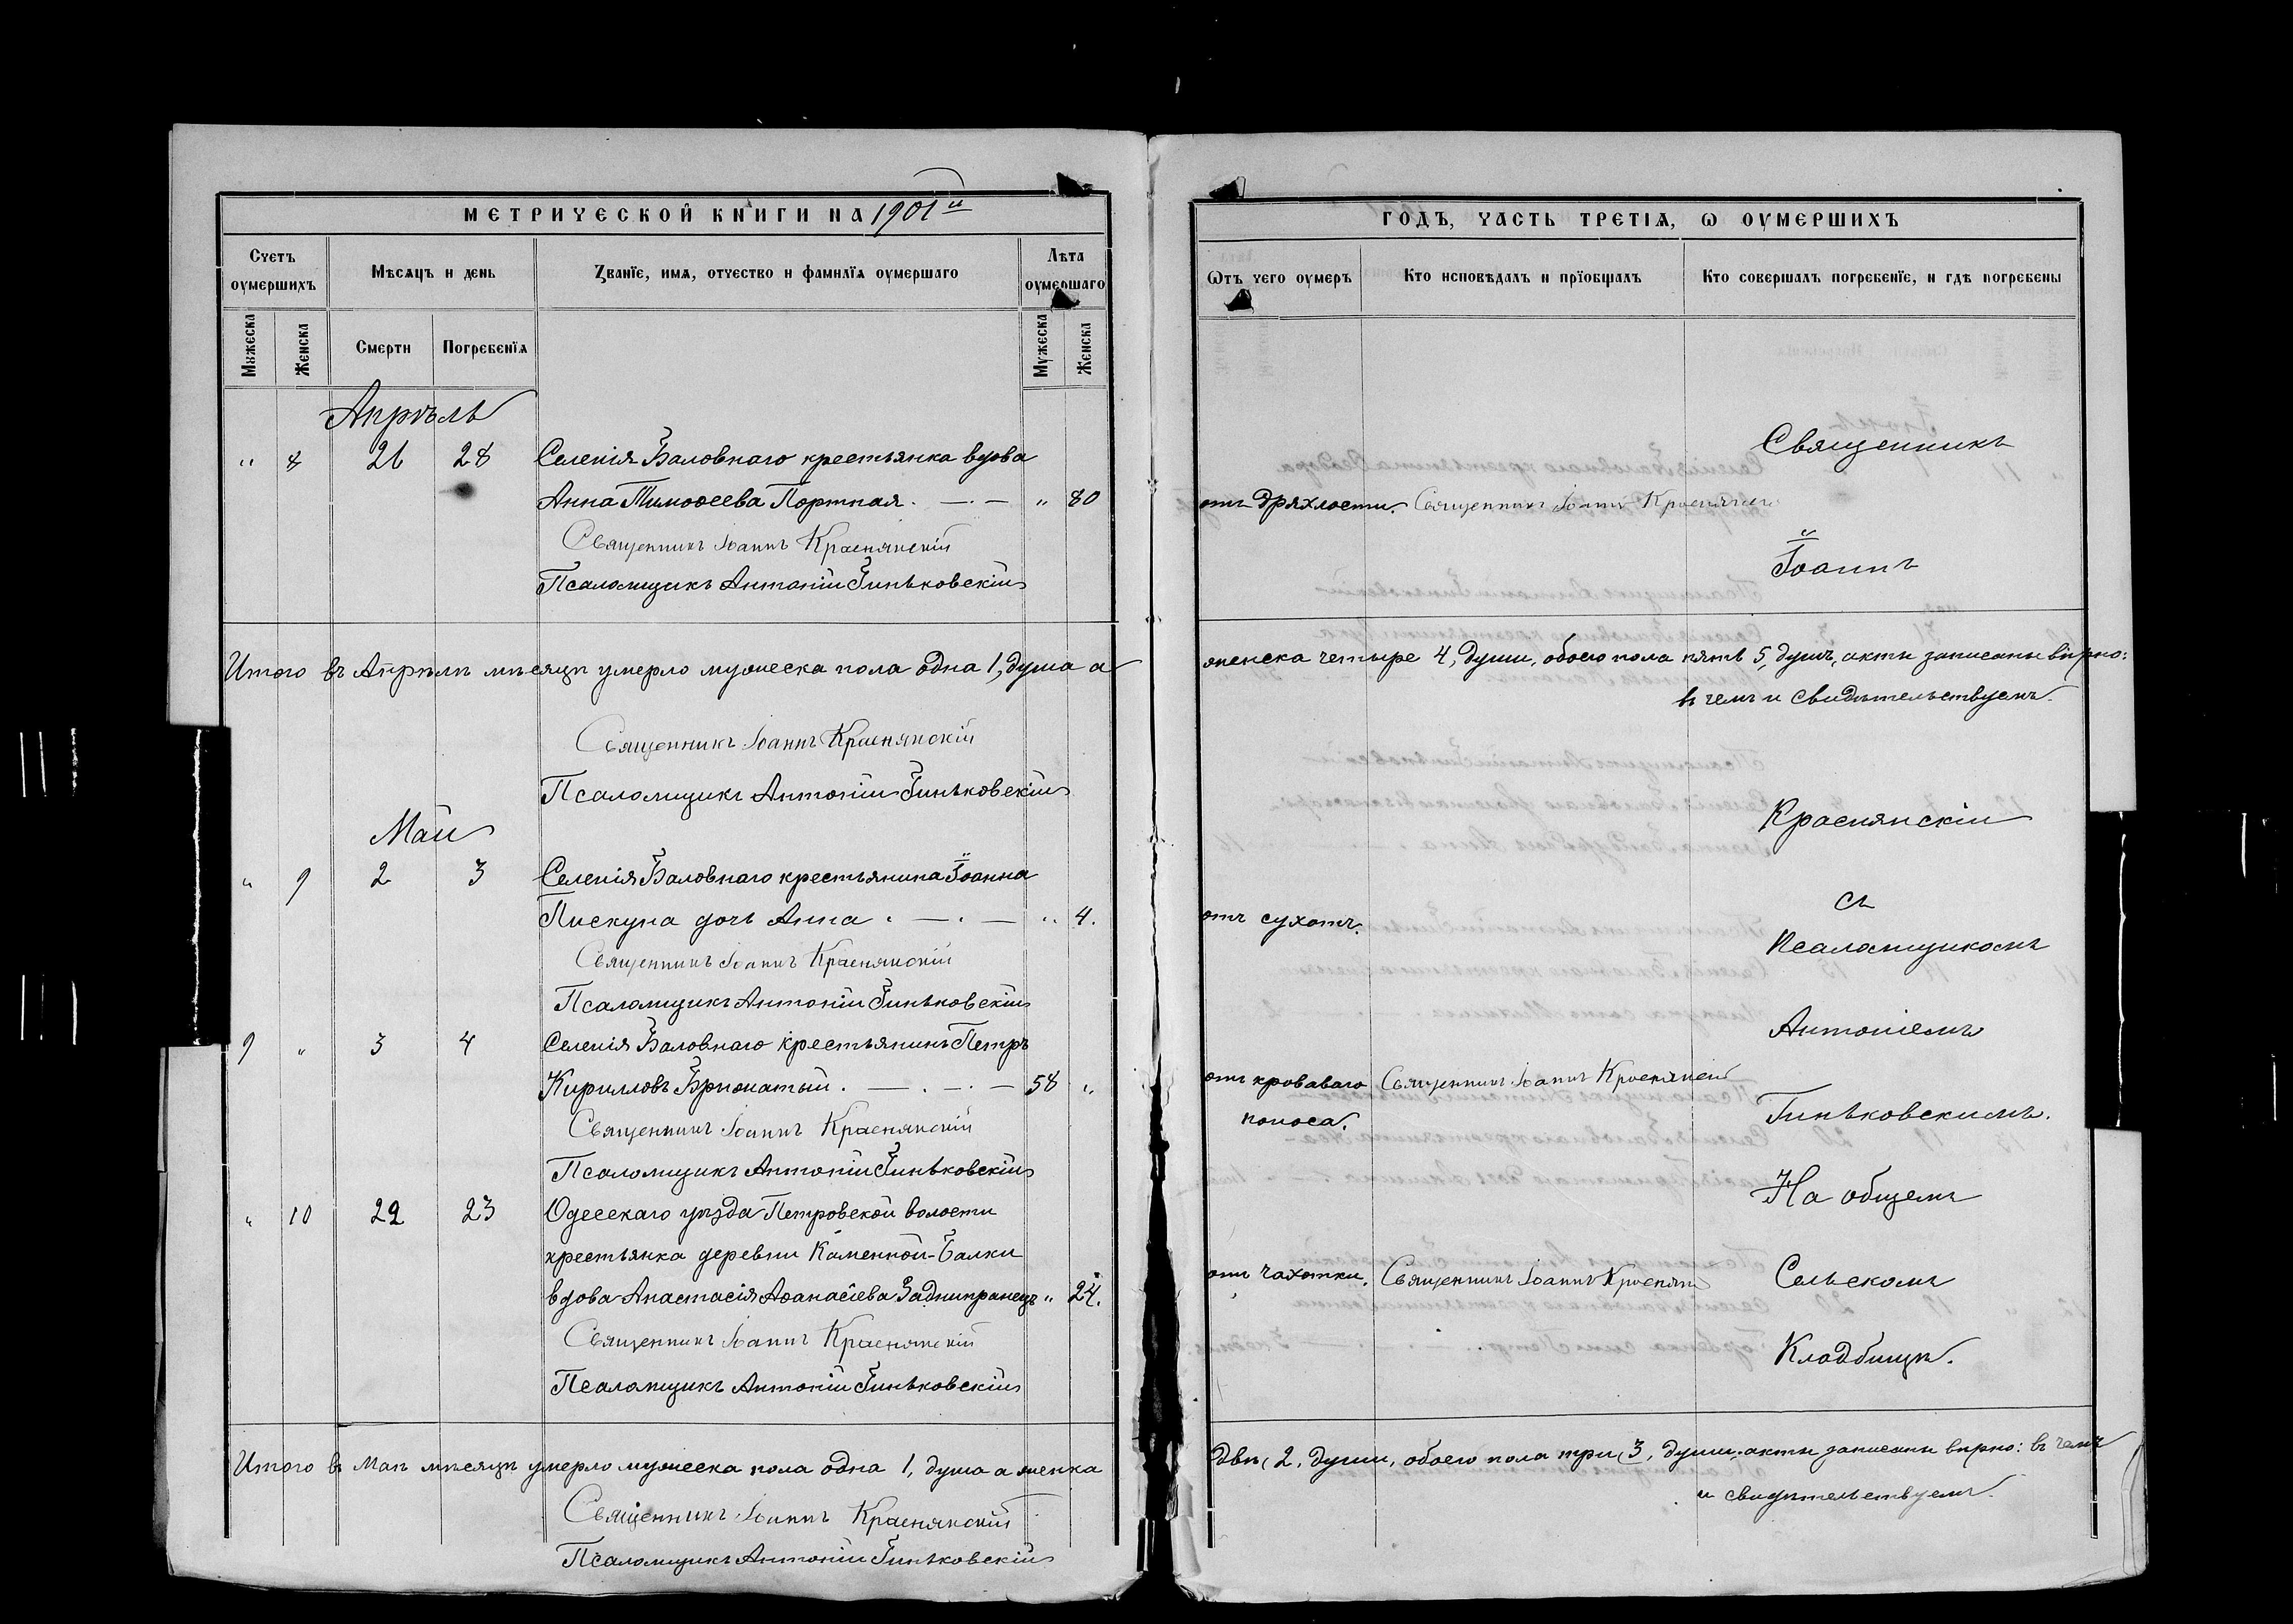 МЕТРИЧЕСКОЙ КНИГИ НА 1901й
Счетъ оумершихъ
Мѣсяцъ и день
Званїе, имя, отчество и фамилїя оумершаго
Лѣта оумершаго
Мужеска
Женска
Смерти
Погребенїя
Мужеска
Женска
Апрѣль
" 8 26 28 Селенія Баловнаго крестьянка вдова
Анна Тимоѳеева Портная . — . — " 80
Священникъ Іоаннъ Краснянскій
Псаломщикъ Антоній Гиньковскій
Итого въ Апрѣлѣ мѣсяцѣ умерло мужеска пола одна 1, душа а
Священникъ Іоаннъ Краснянскій
Псаломщикъ Антоній Гиньковскій
Май
" 9 2 3 Селенія Баловнаго крестьянина Іоанна
Пискуна дочь Анна . — . — " 4.
Священникъ Іоаннъ Краснянскій
Псаломщикъ Антоній Гиньковскій
9 " 3 4 Селенія Баловнаго крестьянинъ Петръ
Кирилловъ Брюжатый . — . — . — 58 "
Священникъ Іоаннъ Краснянскій
Псаломщикъ Антоній Гиньковскій
" 10 22 23 Одесскаго уѣзда Петровской волости
крестьянка деревни Каменной-Балки
вдова Анастасія Аѳанасіева Заднипранецъ " 24.
Священникъ Іоаннъ Краснянскій
Псаломщикъ Антоній Гиньковскій
Итого въ Маѣ мѣсяцѣ умерло мужеска пола одна 1, душа а женка
Священникъ Іоаннъ Краснянскій
Псаломщикъ Антоній Гиньковскій
ГОДЪ, ЧАСТЬ ТРЕТІЯ, Ѡ ОУМЕРШИХЪ
Ѿтъ чего оумеръ
Кто исповѣдалъ и прїобщалъ
Кто совершалъ погребенїе, и гдѣ погребены
Священникъ
отъ дряхлости. Священникъ Іоаннъ Краснянскій
Іоаннъ
женска четыре 4, души, обоего пола пять 5, душъ, акты записаны вѣрно:
въ чемъ и свидѣтельствуемъ.
Краснянскій
съ
отъ сухотъ.
Псаломщикомъ
Антоніемъ
отъ кроваваго Священникъ Іоаннъ Краснянскій
поноса.
Гиньковскимъ.
На общемъ
отъ чахотки. Священникъ Іоаннъ Краснянс
Сельскомъ
Кладбищѣ.
двѣ, 2, души, обоего пола три, 3, души; акты записаны вѣрно: въ чемъ
и свидѣтельствуемъ.